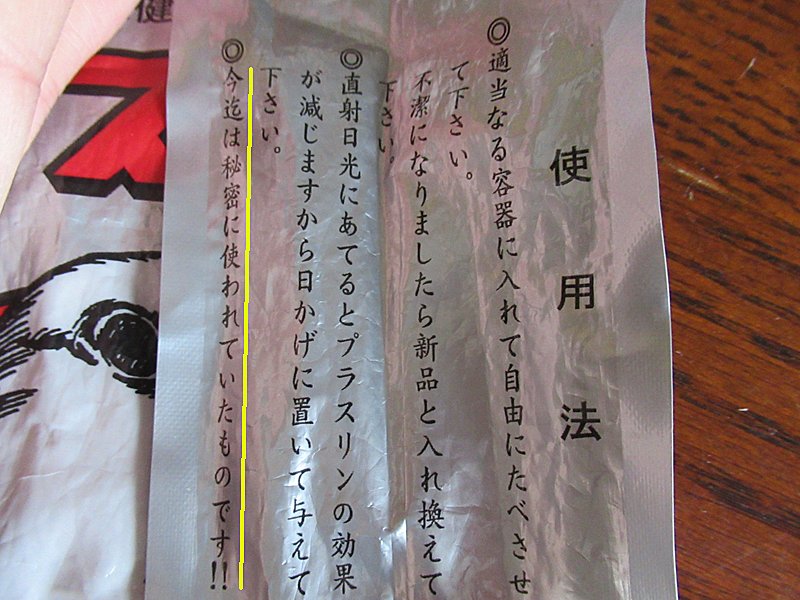 使用法
◎適当なる容器に入れて自由にたべさせ
て下さい。
不潔になりましたら新品と入れ換えて
下さい。
◎直射日光にあてるとプラスリンの効果
が減じますから日かげに置いて与えて
下さい。
◎今迄は秘密に使われていたものです!!
健